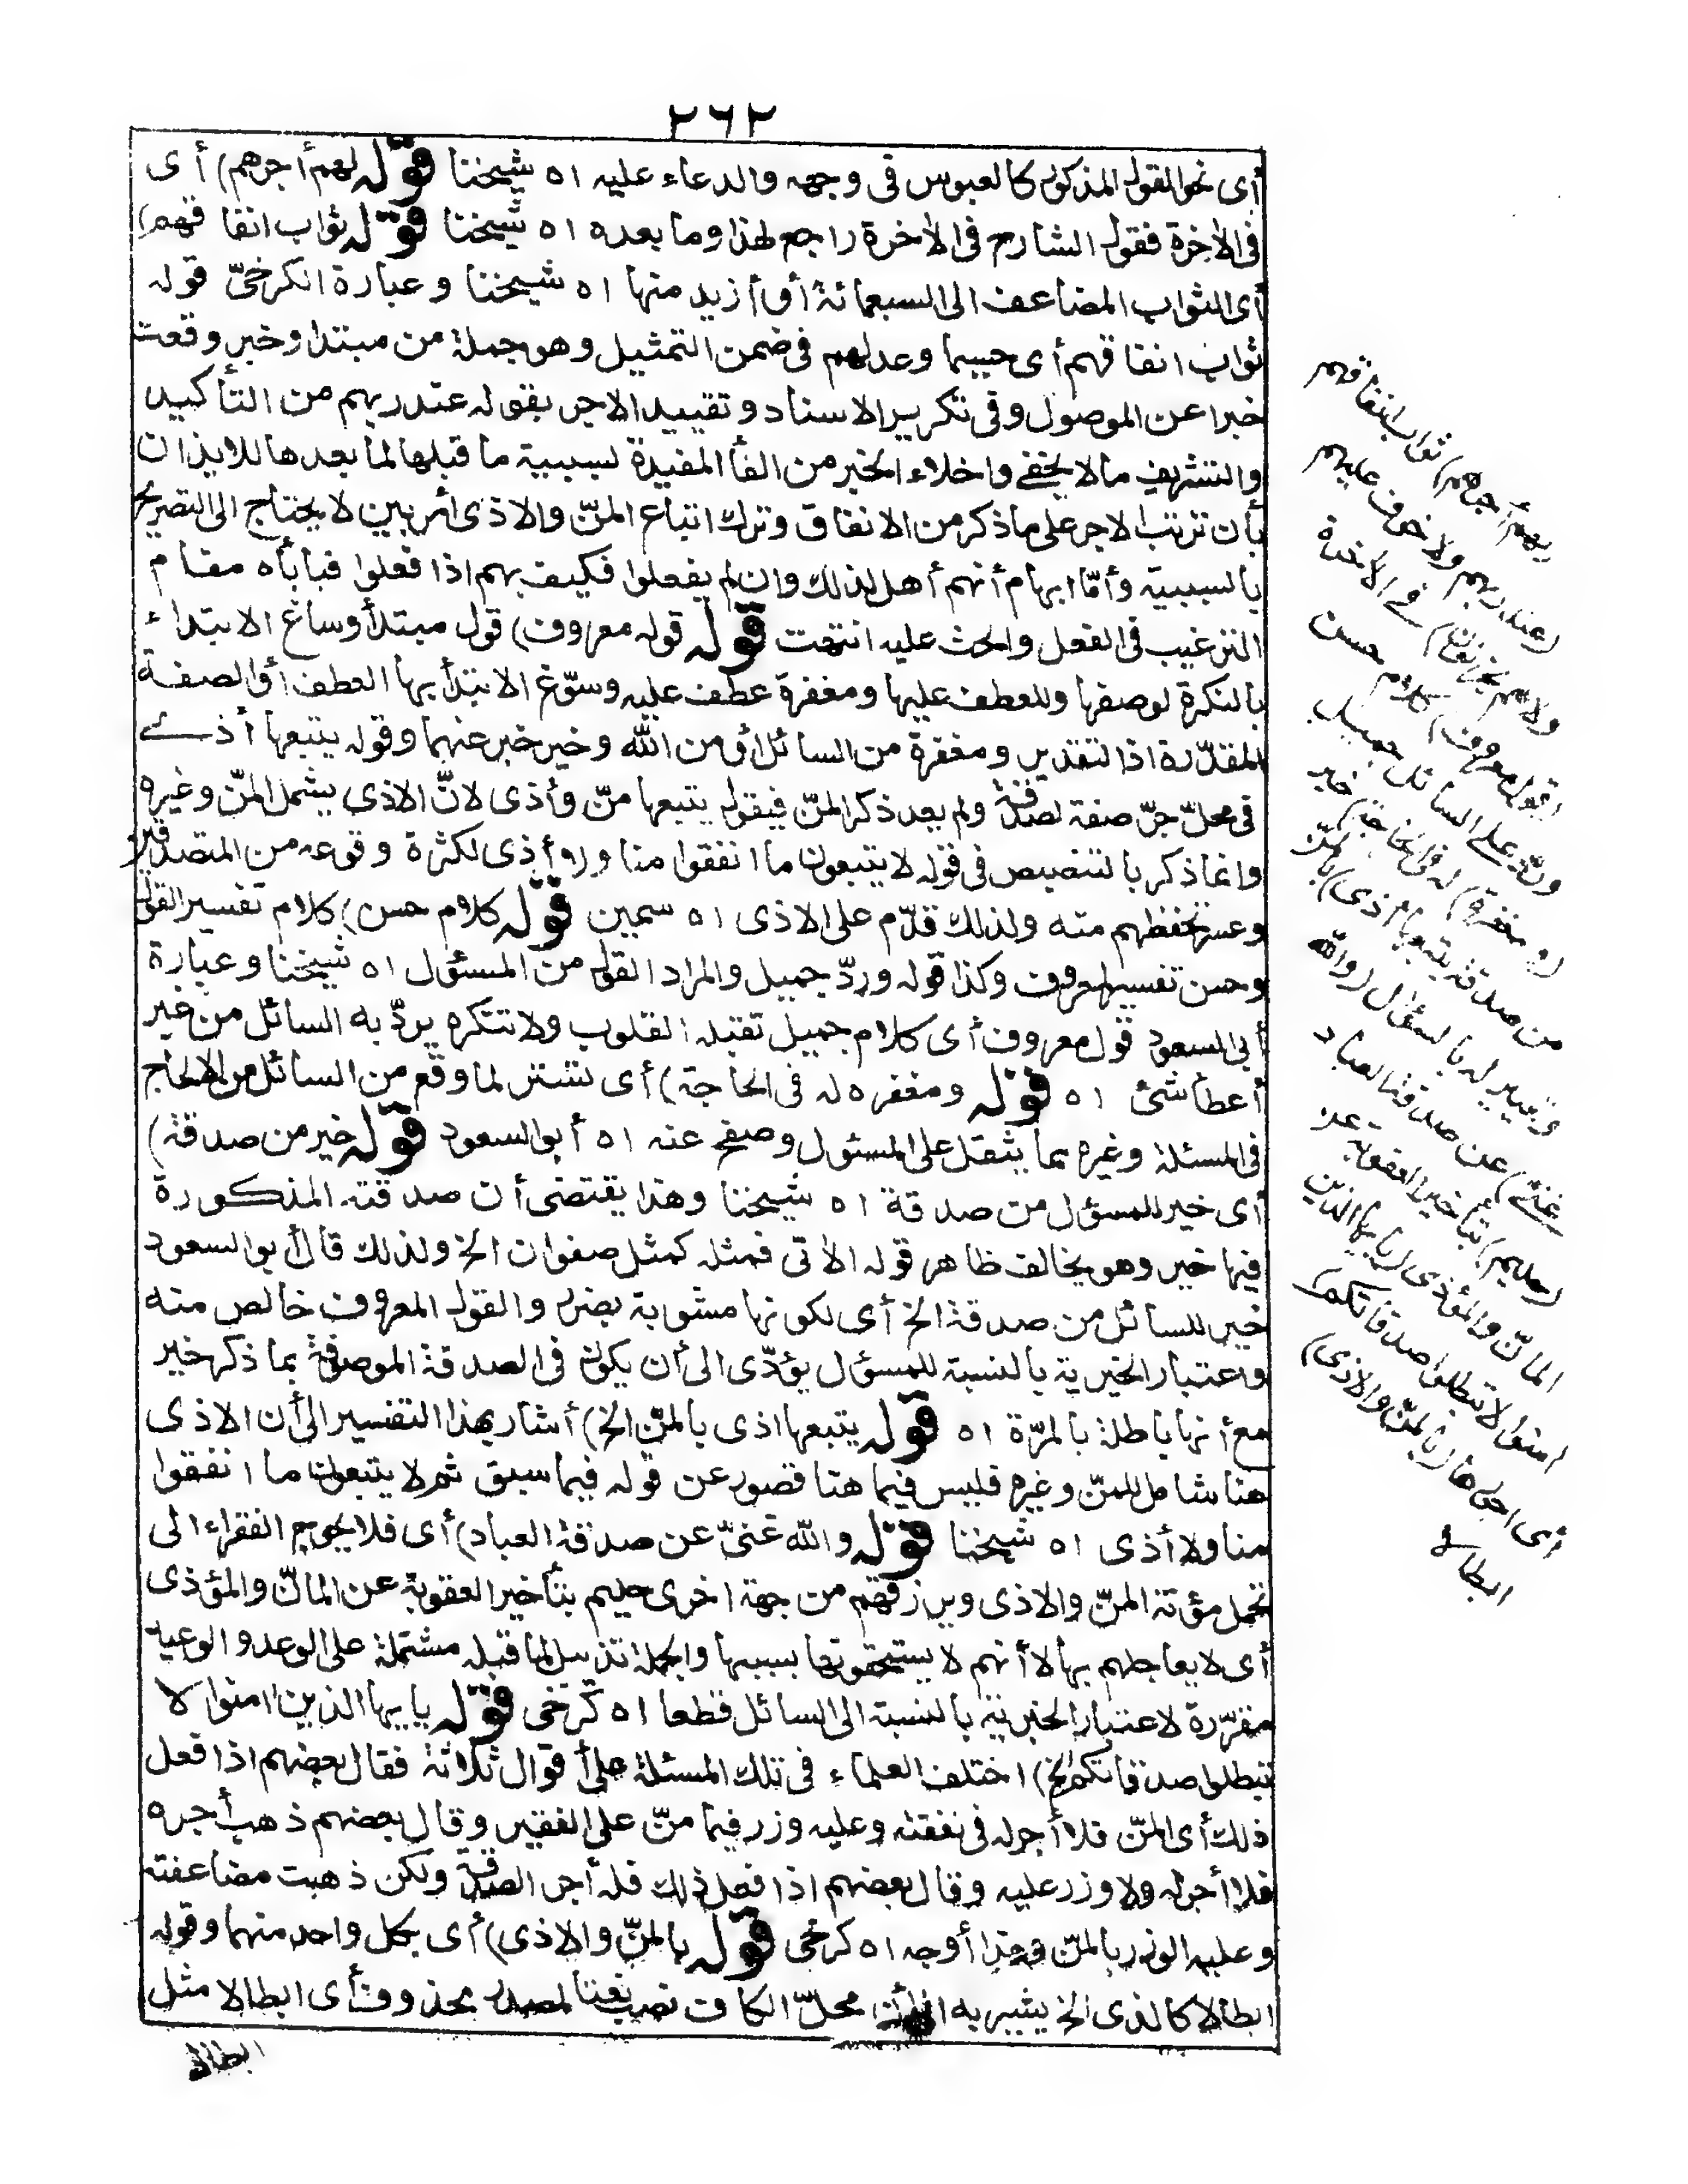 ٢٦٢
أى نحو القول المذكور كالعبوس فى وجهه والدعاء عليه اه شيخنا قوله لهم أجرهم) أى
فى الاخرة فقول الشارح فى الاخرة راجع لهذا وما بعده اه شيخنا قوله ثواب انفاقهم)
أى الثواب المضاعف الى السبعمائة أو أزيد منها اه شيخنا وعبارة الكرخىّ قوله
ثواب انفاقهم أى حسبما وعدلهم فى ضمن التمثيل وهو جملة من مبتدا وخبر وقعت
خبرا عن الموصول وفى تكرير الاسناد وتقييد الاجر بقوله عند ربهم من التأكيد
والتشريف مالا يخفى واخلاء الخبر من الفأ المفيدة لسببية ما قبلها لما بعدها للايذان
بأن ترتب الاجر على ماذكر من الانفاق وترك اتباع المنّ والاذى أمر بين لا يحتاج الى التصريح
بالسببية وأمّا ابهام أنهم أهل لذلك وان لم يفعلوا فكيف بهم اذا فعلوا فيأباه مقام
الترغيب فى الفعل والحث عليه انتهت قوله قوله معروف) قول مبتدأ وساغ الابتداء
بالنكرة لوصفها وللعطف عليها ومغفرة عطف عليه وسوّغ الابتدأ بها العطف أو الصفة
المقدّرة اذ التقدير ومغفرة من السائل أو من الله وخير خبر عنهما وقوله يتبعها أذى
فى محلّ جرّ صفة لصدقة ولم يعد ذكر المنّ فيقول يتبعها منّ وأذى لانّ الاذى يشمل المنّ وغيره
وانما ذكر بالتنصيص فى قوله لا يتبعون ما انفقوا منا ولا أذى لكثرة وقوعه من المتصدقين
وعسر تحفظهم منه ولذلك قدّم على الاذى اه سمين قوله كلام حسن) كلام تفسير القول
وحسن تفسير لمعروف وكذا قوله وردّ جميل والمراد القول من المسئول اه شيخنا وعبارة
أبى السعود قول معروف أى كلام جميل تقبله القلوب ولا تنكره يردّ به السائل من غير
أعطأ شئ اه قوله ومغفره له فى الحاجة) أى تستر لما وقع من السائل من الالحاح
فى المسئلة وغيره مما يثقل على المسئول وصفح عنه اه أبو السعود قوله خير من صدقة)
أى خير للمسؤل من صدقة اه شيخنا وهذا يقتضى أن صدقته المذكورة
فيها خير وهو يخالف ظاهر قوله الاتى فمثله كمثل صفوان الخ ولذلك قال أبو السعود
خير للسائل من صدقة الخ أى لكونها مشوبة بضرر والقول المعروف خالص منه
واعتبار الخيرية بالنسبة للمسؤل يؤدّى الى أن يكون فى الصدقة الموصوفة بما ذكر خير
مع أنها باطلة بالمرّة اه قوله يتبعها اذى بالمنّ الخ) أشار بهذا التفسير الى أن الاذى
هنا شامل للمنّ وغيره فليس فيما هنا قصور عن قوله فيما سبق ثم لا يتبعون ما انفقوا
منا ولا أذى اه شيخنا قوله والله غنىّ عن صدقة العباد) أى فلا يحوج الفقراء الى
تحمل مؤنة المنّ والاذى ويرزقهم من جهة اخرى حليم بتأخير العقوبة عن المانّ والمؤذى
أى لا يعاجلهم بها لا أنهم لا يستحقونها بسببها والجملة تذييل لما قبله مشتملة على الوعد والوعيد
مقرّرة لاعتبار الخيرية بالنسبة الى السائل قطعا اه كرخى قوله يايها الذين امنوا لا
تبطلوا صدقاتكم الخ) اختلف العلماء فى تلك المسئلة على أقوال ثلاثة فقال بعضهم اذا فعل
ذلك أى المنّ فلا أجر له فى نفقته وعليه وزر فيما منّ على الفقير وقال بعضهم ذهب أجره
فلا أجر له ولا وزر عليه وقال بعضهم اذا فعل ذلك فله أجر الصدقة ولكن ذهبت مضاعفته
وعليه الوزر بالمنّ وهذا أوجه اه كرخى قوله بالمنّ والاذى) أى بكل واحد منهما وقوله
ابطالا كالذى الخ يشير به الى أن محلّ الكاف نصب نعتا لمصدر محذوف أى ابطالا مثل
ابطال
لهم أجرهم) ثواب انفاقهم
(عند ربهم ولا خوف عليهم
ولاهم يحزنون) فى الاخرة
(قول معروف) كلام حسن
وردّ على السائل جميل
(ومغفرة) له فى الحاجة (خير
من صدقة يتبعها أذى) بالمنّ
وتعيير له بالسؤال (والله
غنى) عن صدقة العباد
(حليم) بتأخير العقوبة عن
المانّ والمؤذى (يايها الذين
امنوا لا تبطلوا صدقاتكم)
أى اجورها (بالمنّ والاذى)
ابطالا